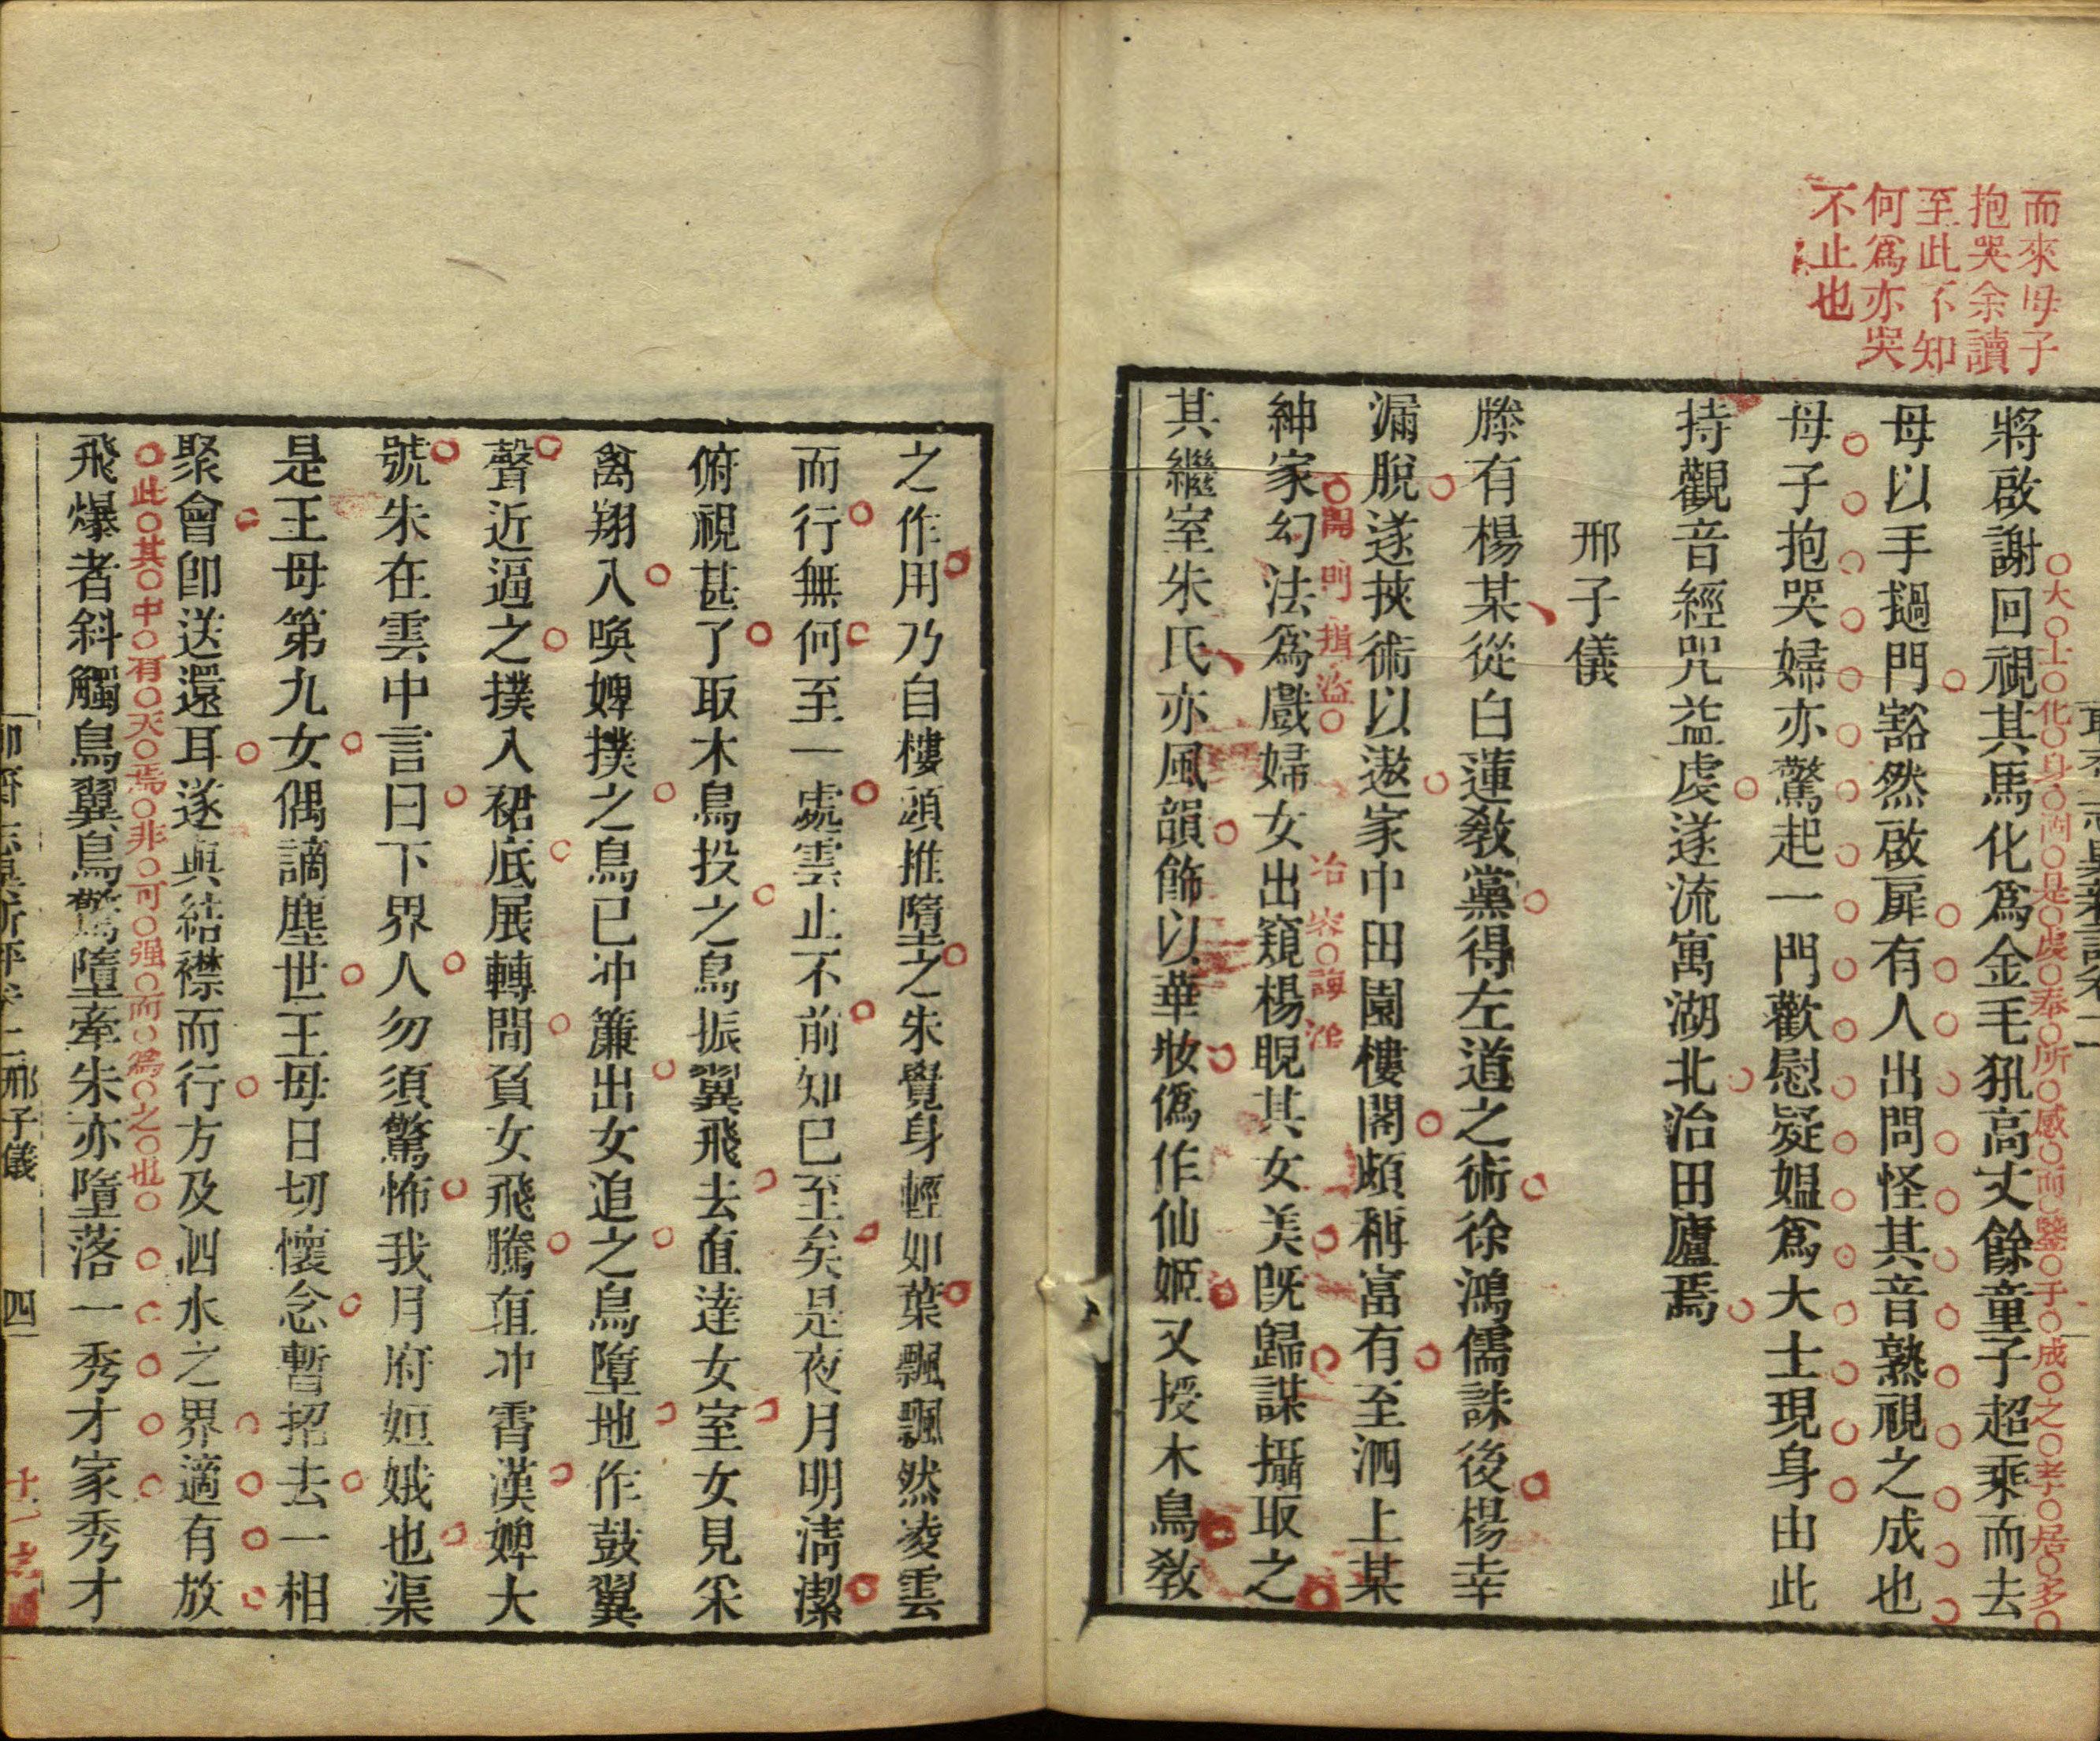 而來母子
抱哭余讀
至此不知
何爲亦哭
不止也
將啟謝回視其馬化爲金毛犼高丈餘童子超乘而去
大士化身洞是虔奉所感而鑒子成之孝居多
母以手撾門豁然啟扉有人出問怪其音熟視之成也
母子抱哭婦亦驚起一門歡慰疑媼爲大士現身由此
持觀音經咒益虔遂流寓湖北治田廬焉
邢子儀
滕有楊某從白蓮教黨得左道之術徐鴻儒誅後楊幸
漏脫遂挾術以遨家中田園樓閣頗稱富有至泗上某
開門揖盜冶容誨淫
紳家幻法爲戲婦女出窺楊睨其女美既歸謀攝取之
其繼室朱氏亦風韻飾以華妝僞作仙姬又授木鳥教
之作用乃自樓頭推墮之朱覺身輕如葉飄飄然凌雲
而行無何至一處雲止不前知已至矣是夜月明清潔
俯視甚了取木鳥投之鳥振翼飛去直達女室女見采
禽翔入喚婢撲之鳥已冲簾出女追之鳥墮地作鼓翼
聲近逼之撲入裙底展轉間負女飛騰直冲霄漢婢大
號朱在雲中言曰下界人勿須驚怖我月府姮娥也渠
是王母第九女偶謫塵世王母日切懷念暫招去一相
聚會卽送還耳遂與結襟而行方及泗水之界適有放
此其中有天焉非可强而爲之也
飛爆者斜觸鳥翼鳥驚墮牽朱亦墮落一秀才家秀才
邢子儀
四